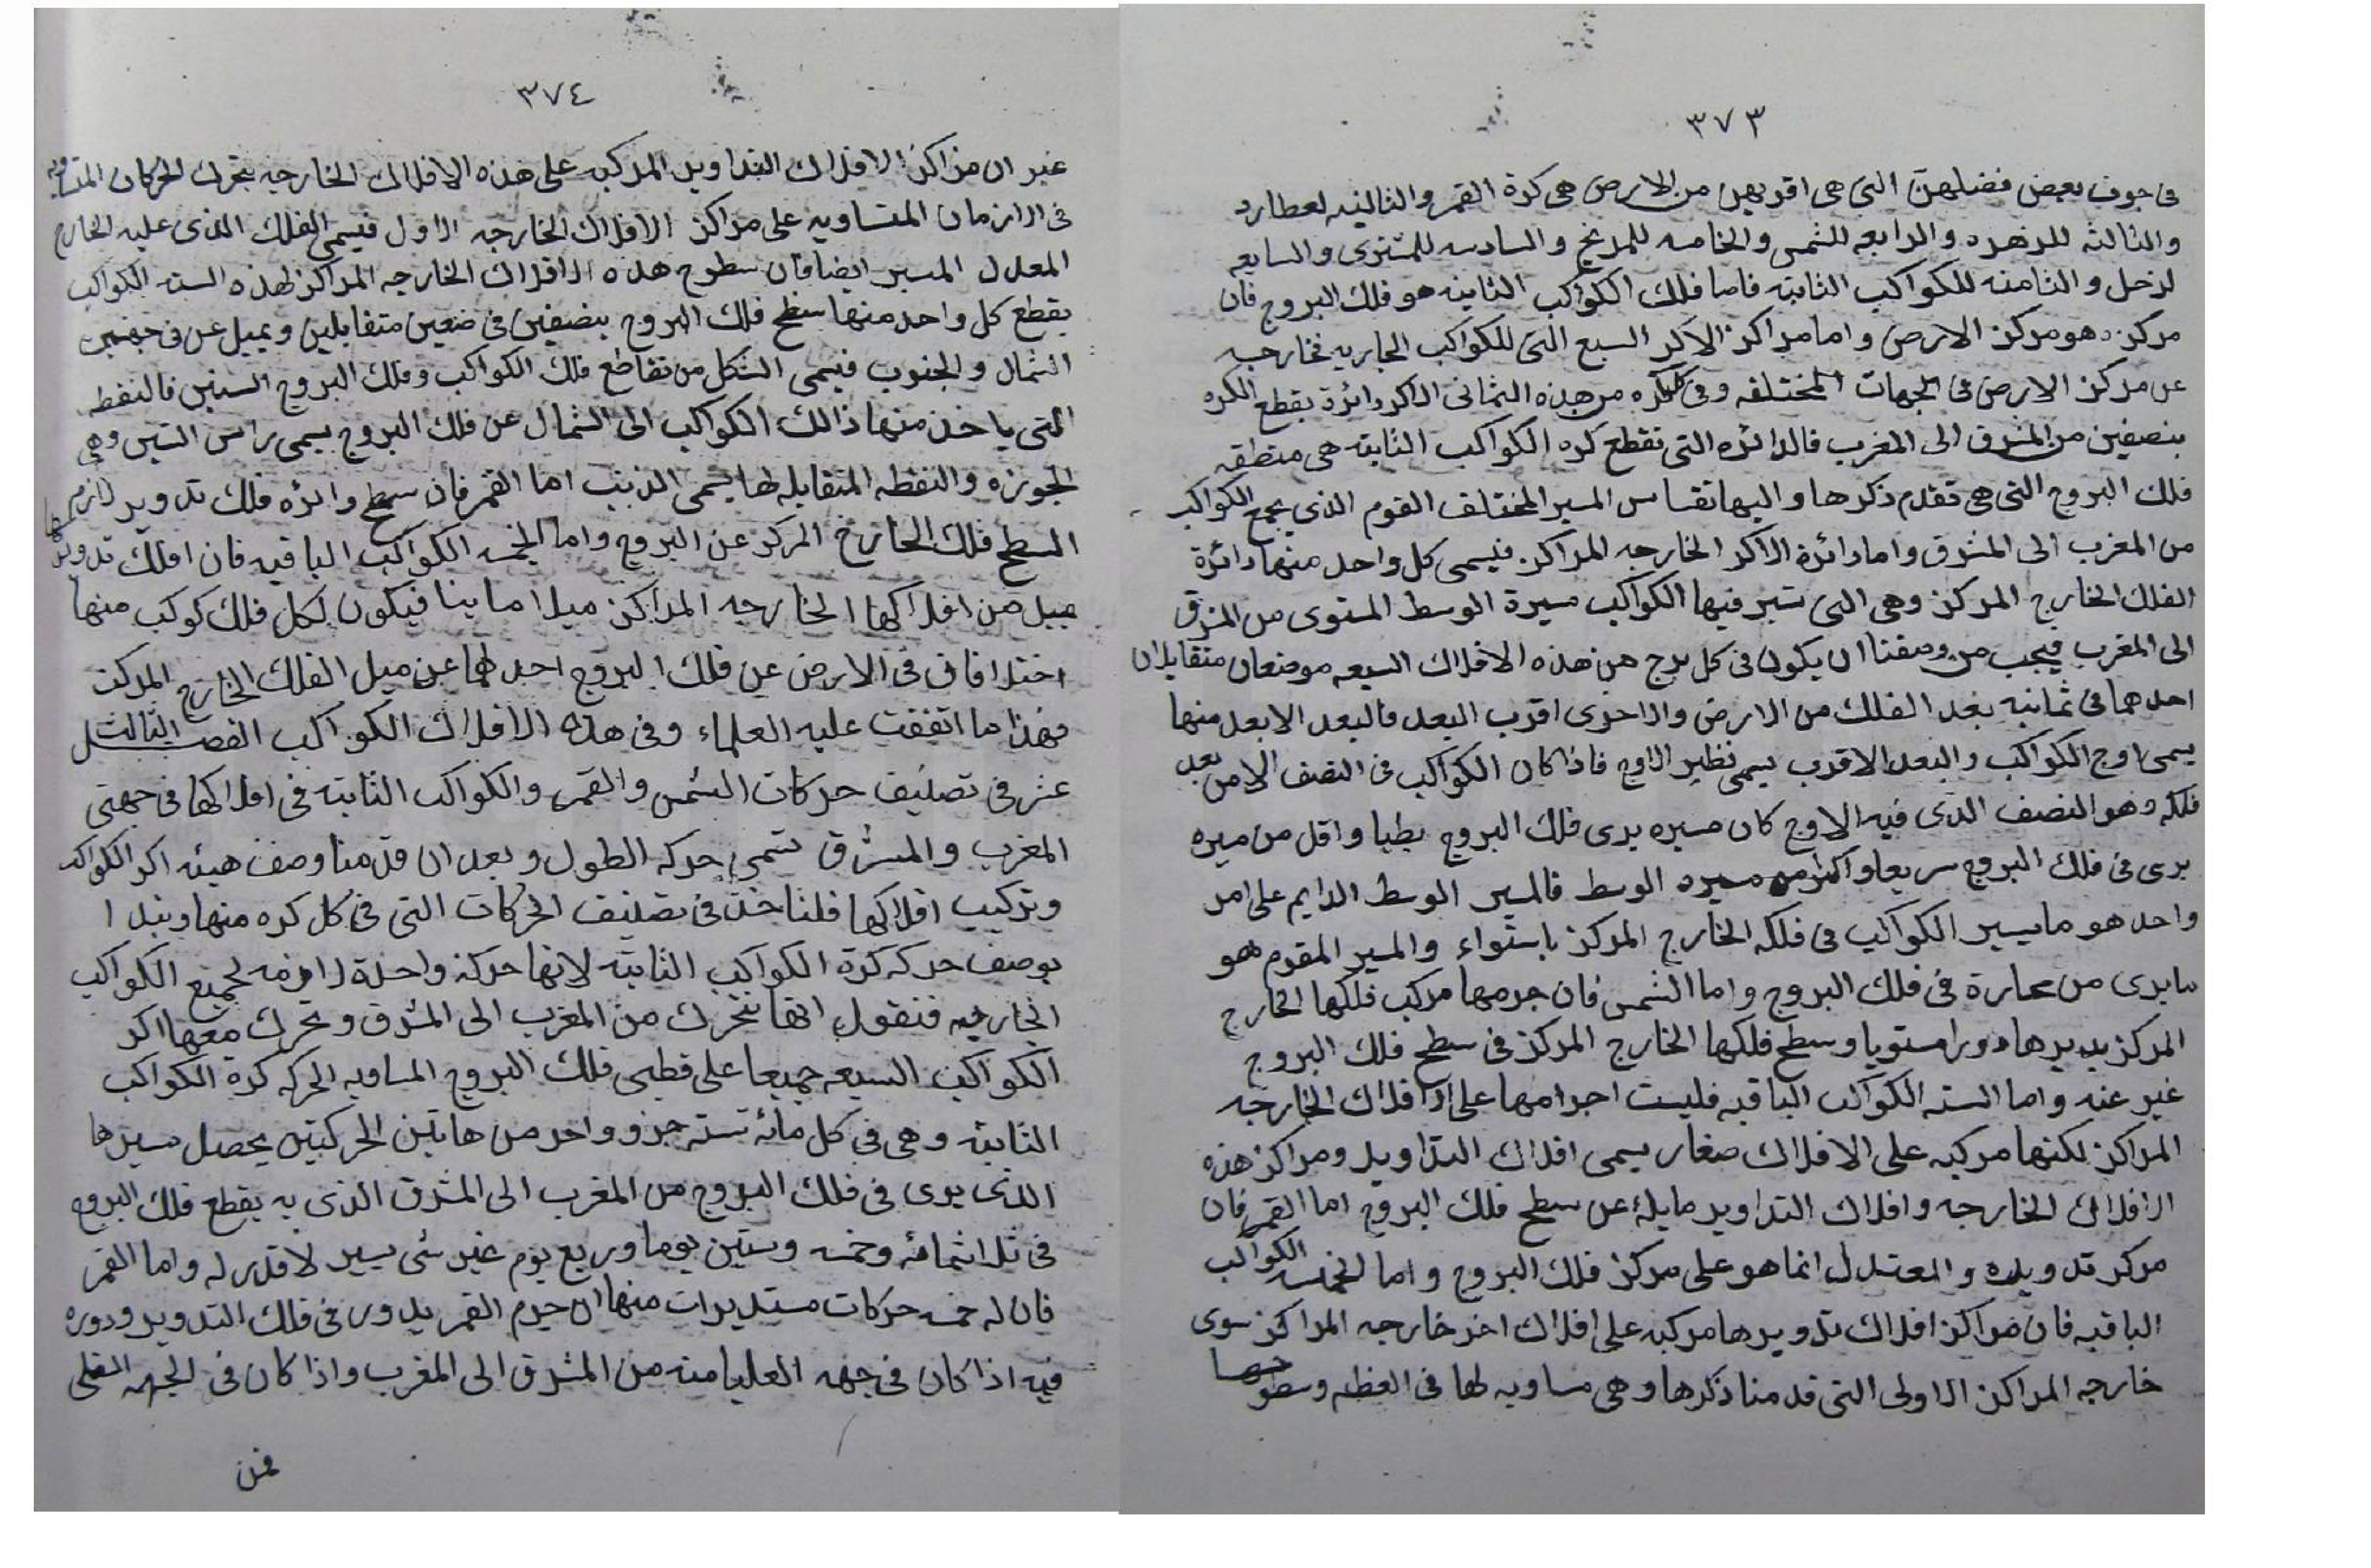 ٣٧٣
فى جوف بعض فضلهن التى هى اقربهن من الارض هى كرة القمر والثانيه لعطارد
والثالثه للزهره والرابعه للشمس والخامسه للمريخ والسادسه للمشترى والسابعه
لزحل والثامنه للكواكب الثابته فاما فلك الكواكب الثابته هو فلك البروج فان
مركزه هو مركز الارض واما مراكز الاكر السبع التى للكواكب الجاريه فخارجه
عن مركز الارض فى الجهات المختلفه وفى كل كره من هذه الثمانى الاكر دائرة يقطع الكره
بنصفين من المشرق الى المغرب فالدائره التى تقطع كره الكواكب الثابته هى منطقه
فلك البروج التى هى تقدم ذكرها واليها تقاس المسير المختلف القوم الذى يجمع الكواكب
من المغرب الى المشرق واما دائرة الاكر الخارجه المراكز فيسمى كل واحد منها دائرة
الفلك الخارج المركز وهى التى تسير فيها الكواكب مسيرة الوسط المستوى من المشرق
الى المغرب فيجب من وصفنا ان يكون فى كل برج من هذه الافلاك السبعه موضعان متقابلان
احدهما فى ثمانيه بعد الفلك من الارض والاخرى اقرب البعد فالبعد الابعد منها
يسمى اوج الكواكب والبعد الاقرب يسمى نظير الاوج فاذا كان الكواكب فى النصف الامن بعد
فلكه وهو النصف الذى فيه الاوج كان مسيره يرى فلك البروج بطيا واقل من ميره
يرى فى فلك البروج سريعا واكثر من مسيره الوسط فالمسير الوسط الدايم على امر
واحد هو ما يسير الكواكب فى فلكه الخارج المركز باستواء والمسير المقوم هو
ما يرى من عبارة فى فلك البروج واما الشمس فان جرمها مركب فلكها الخارج
المركز يديرها دورا مستويا وسطح فلكها الخارج المركز فى سطح فلك البروج
غير عنه واما السته الكواكب الباقيه فليست اجرامها على الافلاك الخارجه
المراكز لكنها مركبه على الافلاك صغار يسمى افلاك التداوير ومراكز هذه
الافلاك الخارجه وافلاك التداوير مايلة عن سطح فلك البروج اما القمر فان
مركز تدويره والمعتدل انما هو على مركز فلك البروج واما الخمسه الكواكب
الباقيه فان مراكز افلاك تدويرها مركبه على افلاك اخر خارجه المراكز سوى
خارجه المراكز الاولى التى قدمنا ذكرها وهى مساويه لها فى العظه وسطوحها
٣٧٤
غير ان مراكز الافلاك التداوير المركبه على هذه الافلاك الخارجه يتحرك الحركات المتساويه
فى الازمان المتساويه على مراكز الافلاك الخارجه الاول فيسمى الفلك الذى عليه الخارج
المعدل المسير ايضا فان سطوح هذه الافلاك الخارجه المراكز لهذه السته الكواكب
يقطع كل واحد منها سطح فلك البروج بنصفين فى ضعين متقابلين ويميل عن فى جهتين
الشمال والجنوب فيسمى الشكل من تقاطع فلك الكواكب وفلك البروج السنين فالنقطه
التى ياخذ منها ذالك الكواكب الى الشمال عن فلك البروج يسمى راس التنين وهى
الجوزه والنقطه المتقابله لها يسمى الذنب اما القمر فان سطح وائره فلك تدوير لازم
السطح فلك الخارج المركز عن البروج واما الخمسه الكواكب الباقيه فان افلاك تدويرها
ميل من افلاكها الخارجه المراكز ميلا ماينا فيكون لكل فلك كوكب منها
اختلافان فى الارض عن فلك البروج احدلها عن ميل الفلك الخارج المركز
فهذا ما اتفقت عليه العلماء وفى هذه الافلاك الكواكب الفصل الثالث
عشر فى تصنيف حركات الشمس والقمر والكواكب الثابته فى افلاكها فى جهتى
المغرب والمشرق تسمى حركه الطول وبعد ان قدمنا وصف هيئه اكر الكواكب
وتركيب افلاكها فلناخذ فى تصنيف الحركات التى فى كل كره منها وبندا
بوصف حركه كرة الكواكب الثابته لانها حركة واحدة لازمه لجميع الكواكب
الجاريه فنقول انها تتحرك من المغرب الى المشرق وتحرك معها اكر
الكواكب السبعه جميعا على قطبى فلك البروج المساويه الحركه كرة الكواكب
الثابته وهى فى كل مائه سنه جزو واحد من هاتين الحركتين يحصل مسيرها
الذى يرى فى فلك البروج من المغرب الى المشرق الذى به يقطع فلك البروج
فى ثلاثمائه وخمسه وستين يوما وربع يوم غير شى يسير لا قدر له واما القمر
فان له خمسه حركات مستديرات منها ان جرم القمر يدور فى فلك التدوير ودوره
فيه اذا كان فى جهه العليا منه من المشرق الى المغرب واذا كان فى الجهه السفلى
فمن